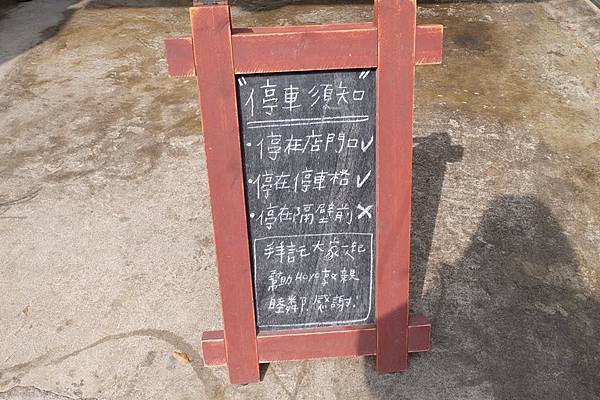 "停車須知"
·停在店門口✓
·停在停車格✓
·停在隔壁前✗
拜託大家一起
幫助Hoyo敦親
睦鄰!感謝!